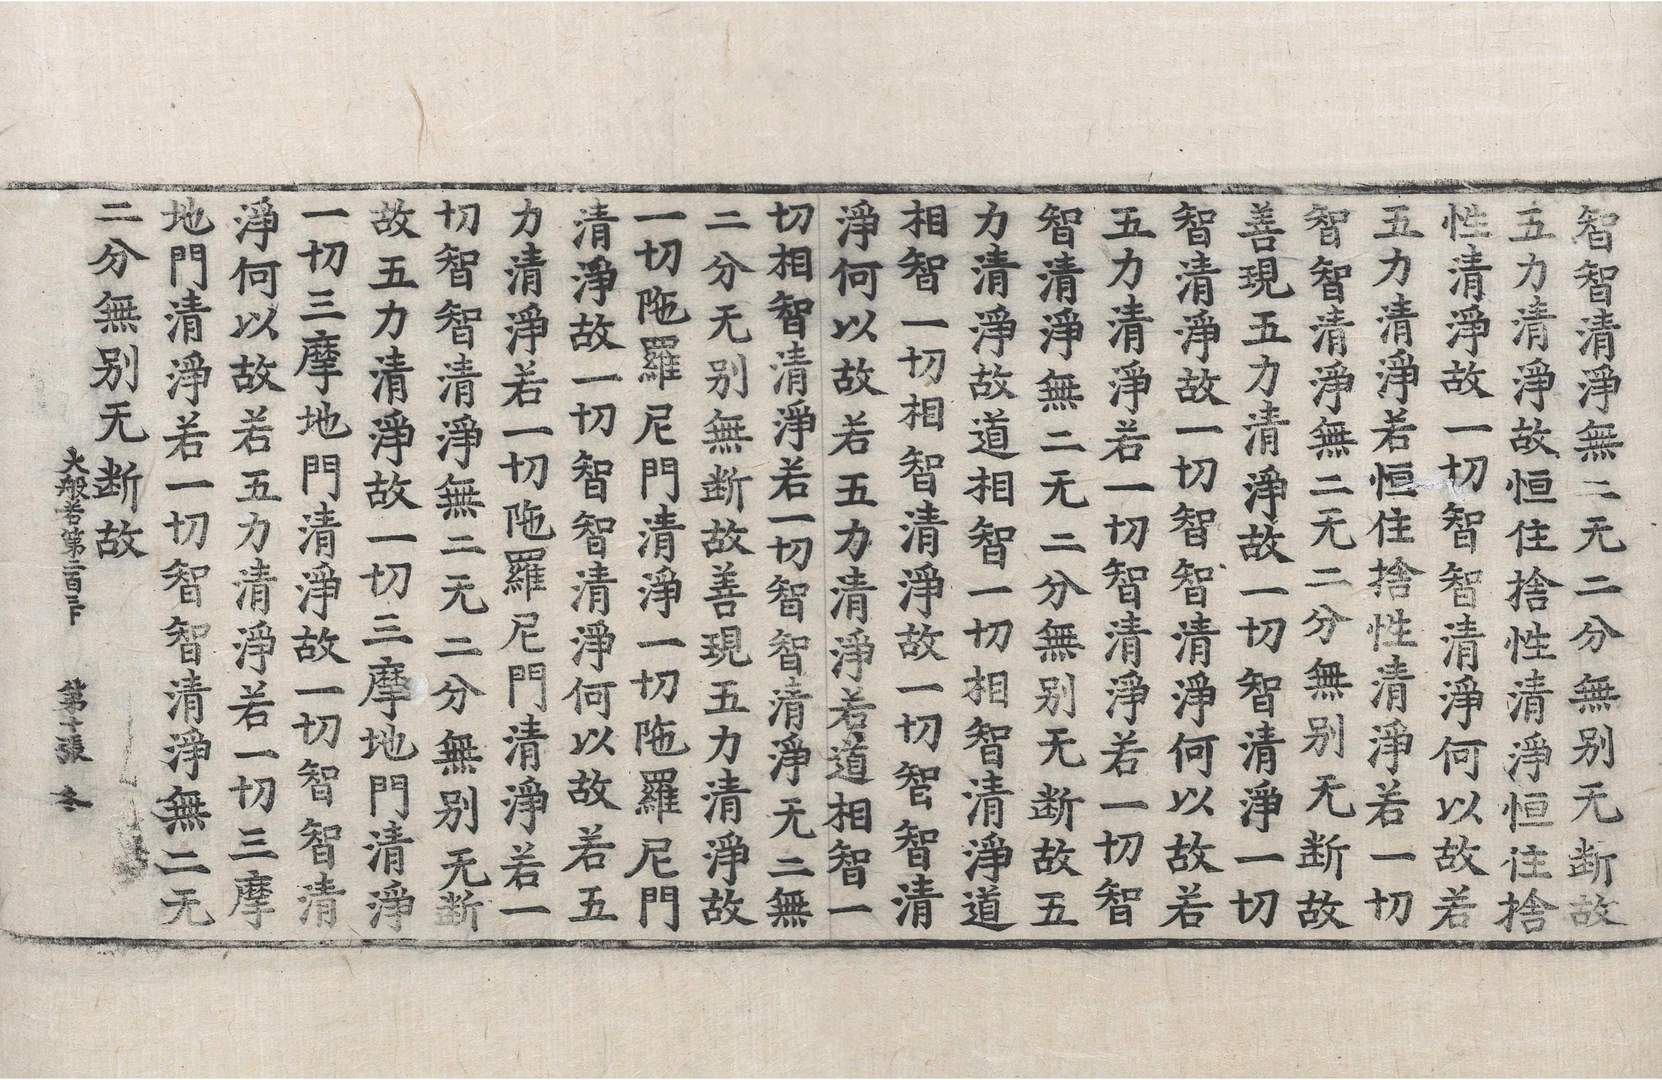 智智清淨無二无二分無别无断故
五力清淨故恒住捨性清淨恒住捨
性清淨故一切智智清淨何以故若
五力清淨若恒住捨性清淨若一切
智智清淨無二无二分無别无断故
善現五力清淨故一切智清淨一切
智清淨故一切智智清淨何以故若
五力清淨若一切智清淨若一切智
智清淨無二无二分無别无断故五
力清淨故道相智一切相智清淨道
相智一切相智清淨故一切智智清
淨何以故若五力清淨若道相智一
切相智清淨若一切智智清淨无二無
二分无别無断故善現五力清淨故
一切陁羅尼門清淨一切陁羅尼門
清淨故一切智智清淨何以故若五
力清淨若一切陁羅尼門清淨若一
切智智清淨無二无二分無别无断
故五力清淨故一切三摩地門清淨
一切三摩地門清淨故一切智智清
淨何以故若五力清淨若一切三摩
地門清淨若一切智智清淨無二无
二分無别无断故
大般若第二百三十 第十張 冬